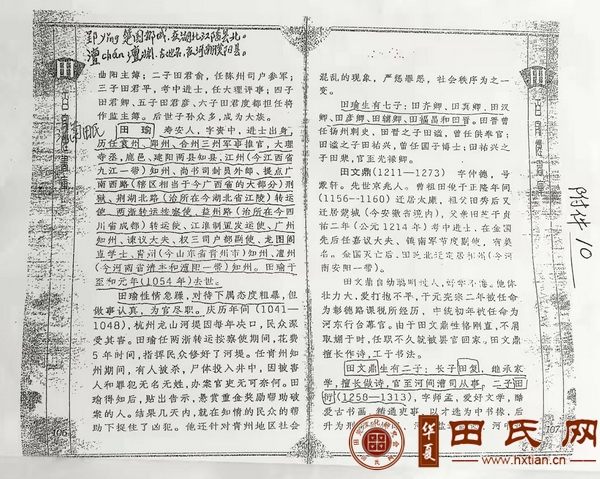 郢 yǐng 楚国都城,在湖北江陵县北。
澶 chán 澶渊,古地名,在河南濮阳县。
曲阳主簿;二子田君俞,任陈州司户参军;
三子田君平,考中进士,任大理评事;四子
田君卿、五子田君彦、六子田君度都担任将
作监主簿。后世子孙众多,成为大族。
田瑜 寿安人,字资中,进士出身,
历任袁州、郢州、合州三州军事推官,大理
寺丞,鹿邑、建阳两县知县,江州(今江西省
九江一带)知州、尚书司封员外郎、提点广
南西路(辖区相当于今广西省的大部分)刑
狱、荆湖北路(治所在今湖北省江陵)转运
使、两浙转运按察使、益州路(治所在今四
川省成都)转运使、江淮制置发运使、广州
知州、谏议大夫、权三司户部副使、龙图阁
直学士、青州(今山东省青州市)知州、澶州
(今河南省清丰和濮阳一带)知州。田瑜于
至和元年(1054年)去世。
田瑜性情急躁,对待下属态度粗暴,但
做事认真,为官尽职。庆历年间(1041—
1048),杭州龙山河堤因每年决口,民众深
受其害。田瑜任两浙转运按察使期间,花费
5年时间,指挥民众修好了河堤。任青州知
州期间,有人被杀,尸体投入井中,因被害
人和罪犯无名无姓,办案官吏无可奈何。田
瑜得知后,贴出告示,悬赏重金奖励帮助破
案的人。结果几天内,就在知情的民众的帮
助下捉住了凶犯。他还针对青州地区社会
106
混乱的现象,严惩罪恶,社会秩序为之一
变。
田瑜生有七子:田齐卿、田真卿、田汉
卿、田彦卿、田辅卿、田福昌和田晋。田晋曾
任扬州刺史,田晋之子田谥,曾任供奉官;
田谥之子田祐兴,曾任国子博士;田祐兴之
子田棐,官至光禄卿。
田文鼎(1211—1273) 字仲德,号
蒙轩。先世京兆人。曾祖田悦于正隆年间
(1156—1160)迁居大康,祖父田秀后又
迁居楚城(今安徽省境内),父亲田芝于贞
祐二年(公元1214年)考中进士,在金国
先后任嘉议大夫、镇南军节度副使,有美
名。金国灭亡后,田芝北迁定居相(今河
南安阳一带)。
田文鼎自幼聪明过人,好学不倦。他体
壮力大,爱打抱不平,于元宪宗二年被任命
为彰德路课税所经历,中统初年被任命为
河东行台幕官。由于田文鼎性格刚直,不肯
取媚于时,任职不久就被罢官回家,田文鼎
擅长作诗,工于书法。
田文鼎生有二子:长子田复,继承家
学,擅长做诗,官至河间漕司从事,二子田
衍(1258—1313),字师孟,爱好文学,酷
爱古书画,精通吏事,以才选为中书掾,后
107
附件10
华夏
田氏网
www.hxtian.cn